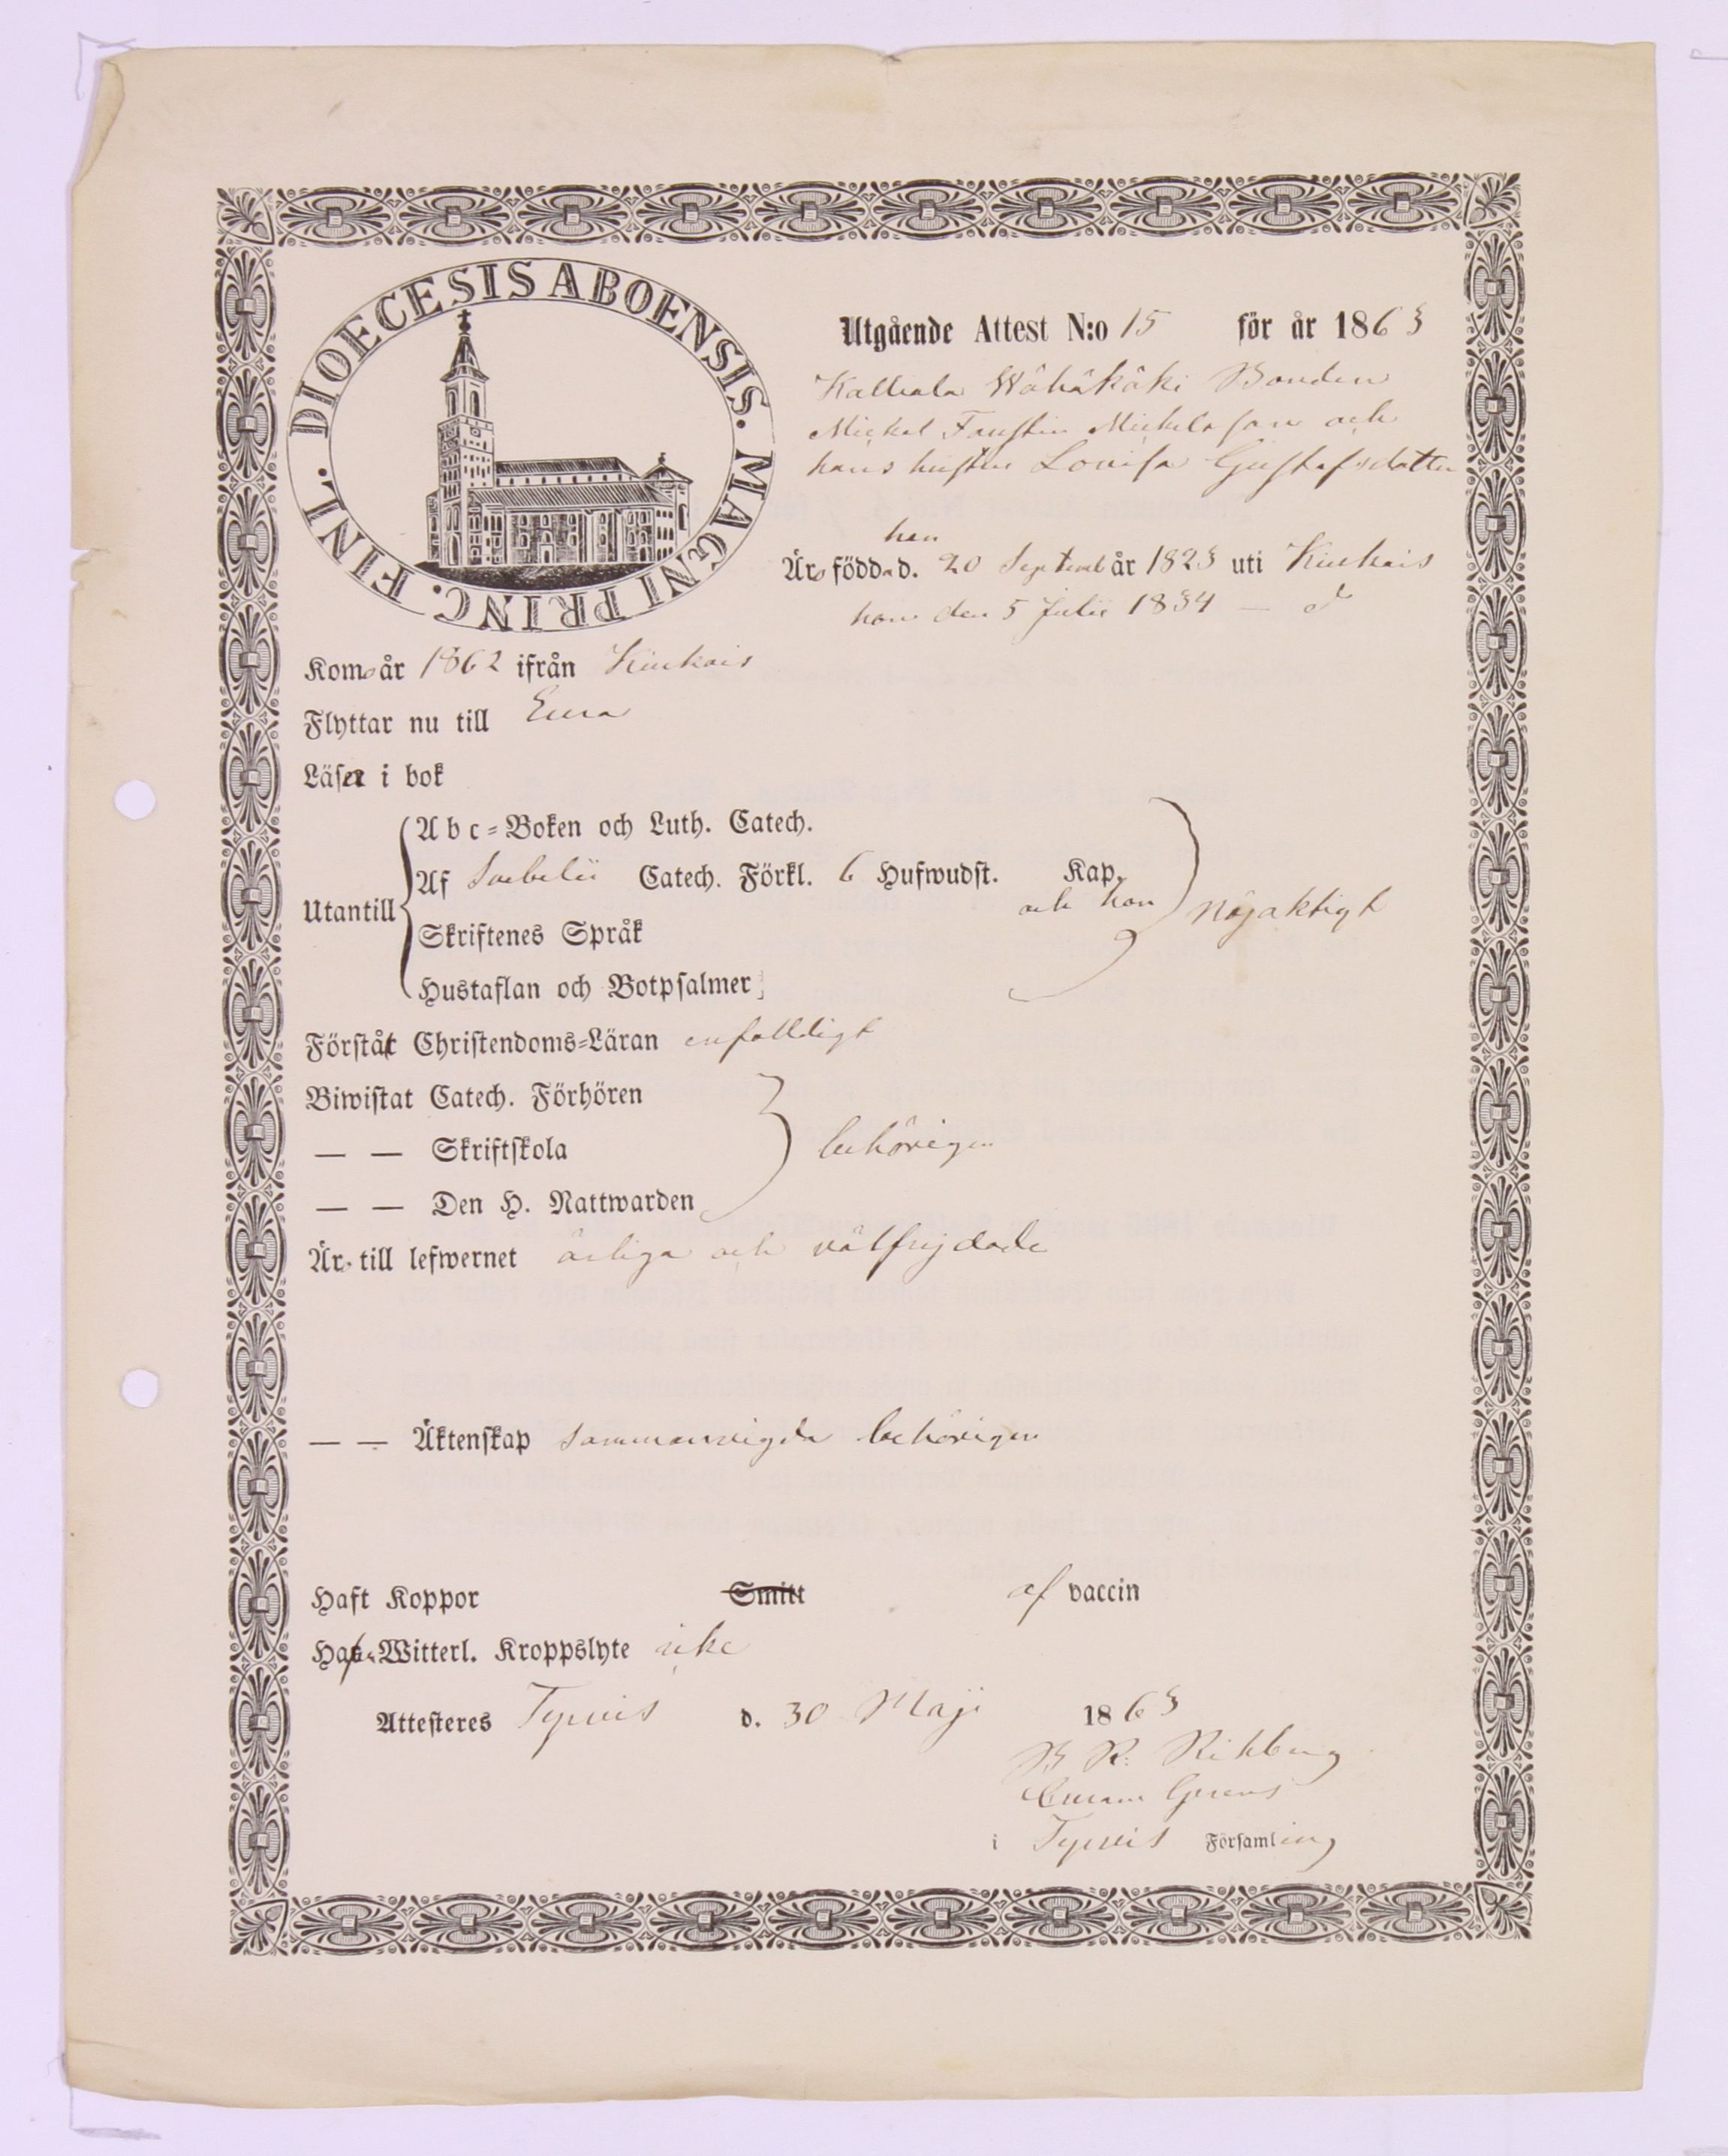 DIOECESIS ABOENSIS. MAGNI PRINC. FINL.
Utgående Attest N:o 15 för år 1863
Kalliala Wähäkäki Bonden
Mickel Faustin Mickelsson och
hans hustru Lovisa Gustafsdotter
han
Äro födda d. 20 Septemb år 1823 uti Kiukais
hon den 5 Julii 1834 — d
Komo år 1862 ifrån Kiukais
Flyttar nu till Eura
Läsa i bok
Utantill
Abc-Boken och Luth. Catech.
Af Svebelii Catech. Förkl. 6 Hufwudst. Kap.
och hon nöjaktigt
Skriftenes Språk
Hustaflan och Botpsalmer
Förstå Christendoms-Läran enfalldigt
Biwistat Catech. Förhören
— — Skriftskola behörigen
— — Den H. Nattwarden
Är till lefwernet ärliga och välfrejdade
— — Äktenskap sammanvigda behörigen
Haft Koppor Smitt af vaccin
Hafa Witterl. Kroppslyte icke
Attesteres Tyrvis d. 30 Maji 1863
B R: Rihlberg
Curam Gerens
i Tyrvis Församling